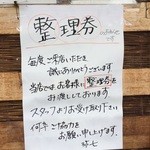 整理券
毎度ご来店いただき
誠にありがとうございます
当店では、お客様に整理券を
お渡ししております
スタッフよりお受け取り下さい
何卒ご協力を
お願い申し上げます